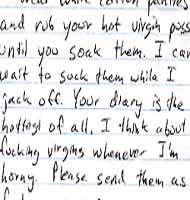 wear white cotton panties
and rub your hot virgin puss
until you soak them. I can
wait to suck them while I
jack off. Your diary is the
hottest of all. I think about
fucking virgins whenever I'm
horny. Please send them as